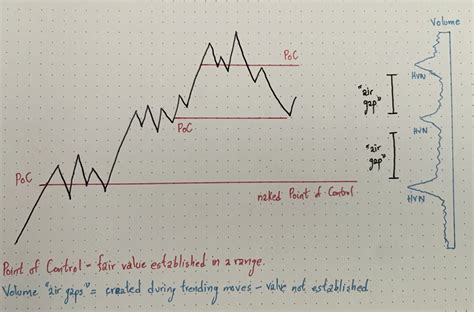 Volume
PoC
HVN
"air
gap"
PoC
HVN
"air
gap"
PoC
naked Point of Control
HVN
Point of Control - fair value established in a range.
Volume "air gaps" = created during trending moves - value not established